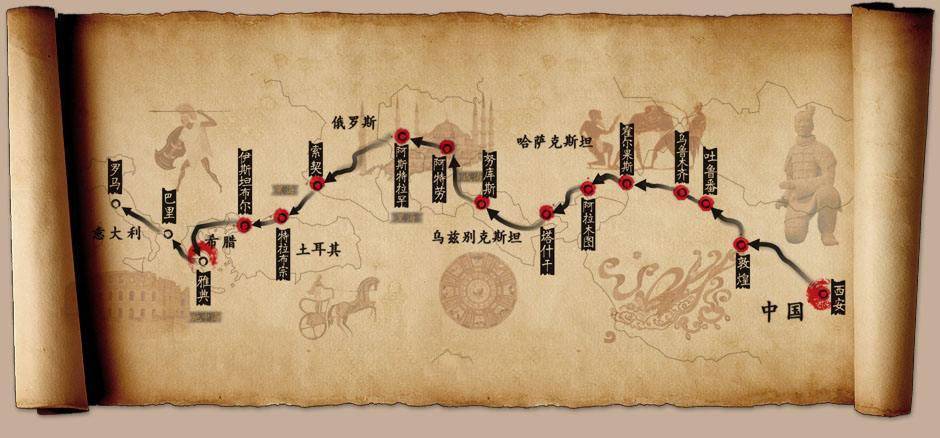 俄罗斯
哈萨克斯坦
乌兹别克斯坦
土耳其
希腊
意大利
中国
西安
敦煌
吐鲁番
乌鲁木齐
霍尔果斯
阿拉木图
塔什干
努库斯
阿特劳
阿斯特拉罕
索契
特拉布宗
伊斯坦布尔
雅典
巴里
罗马